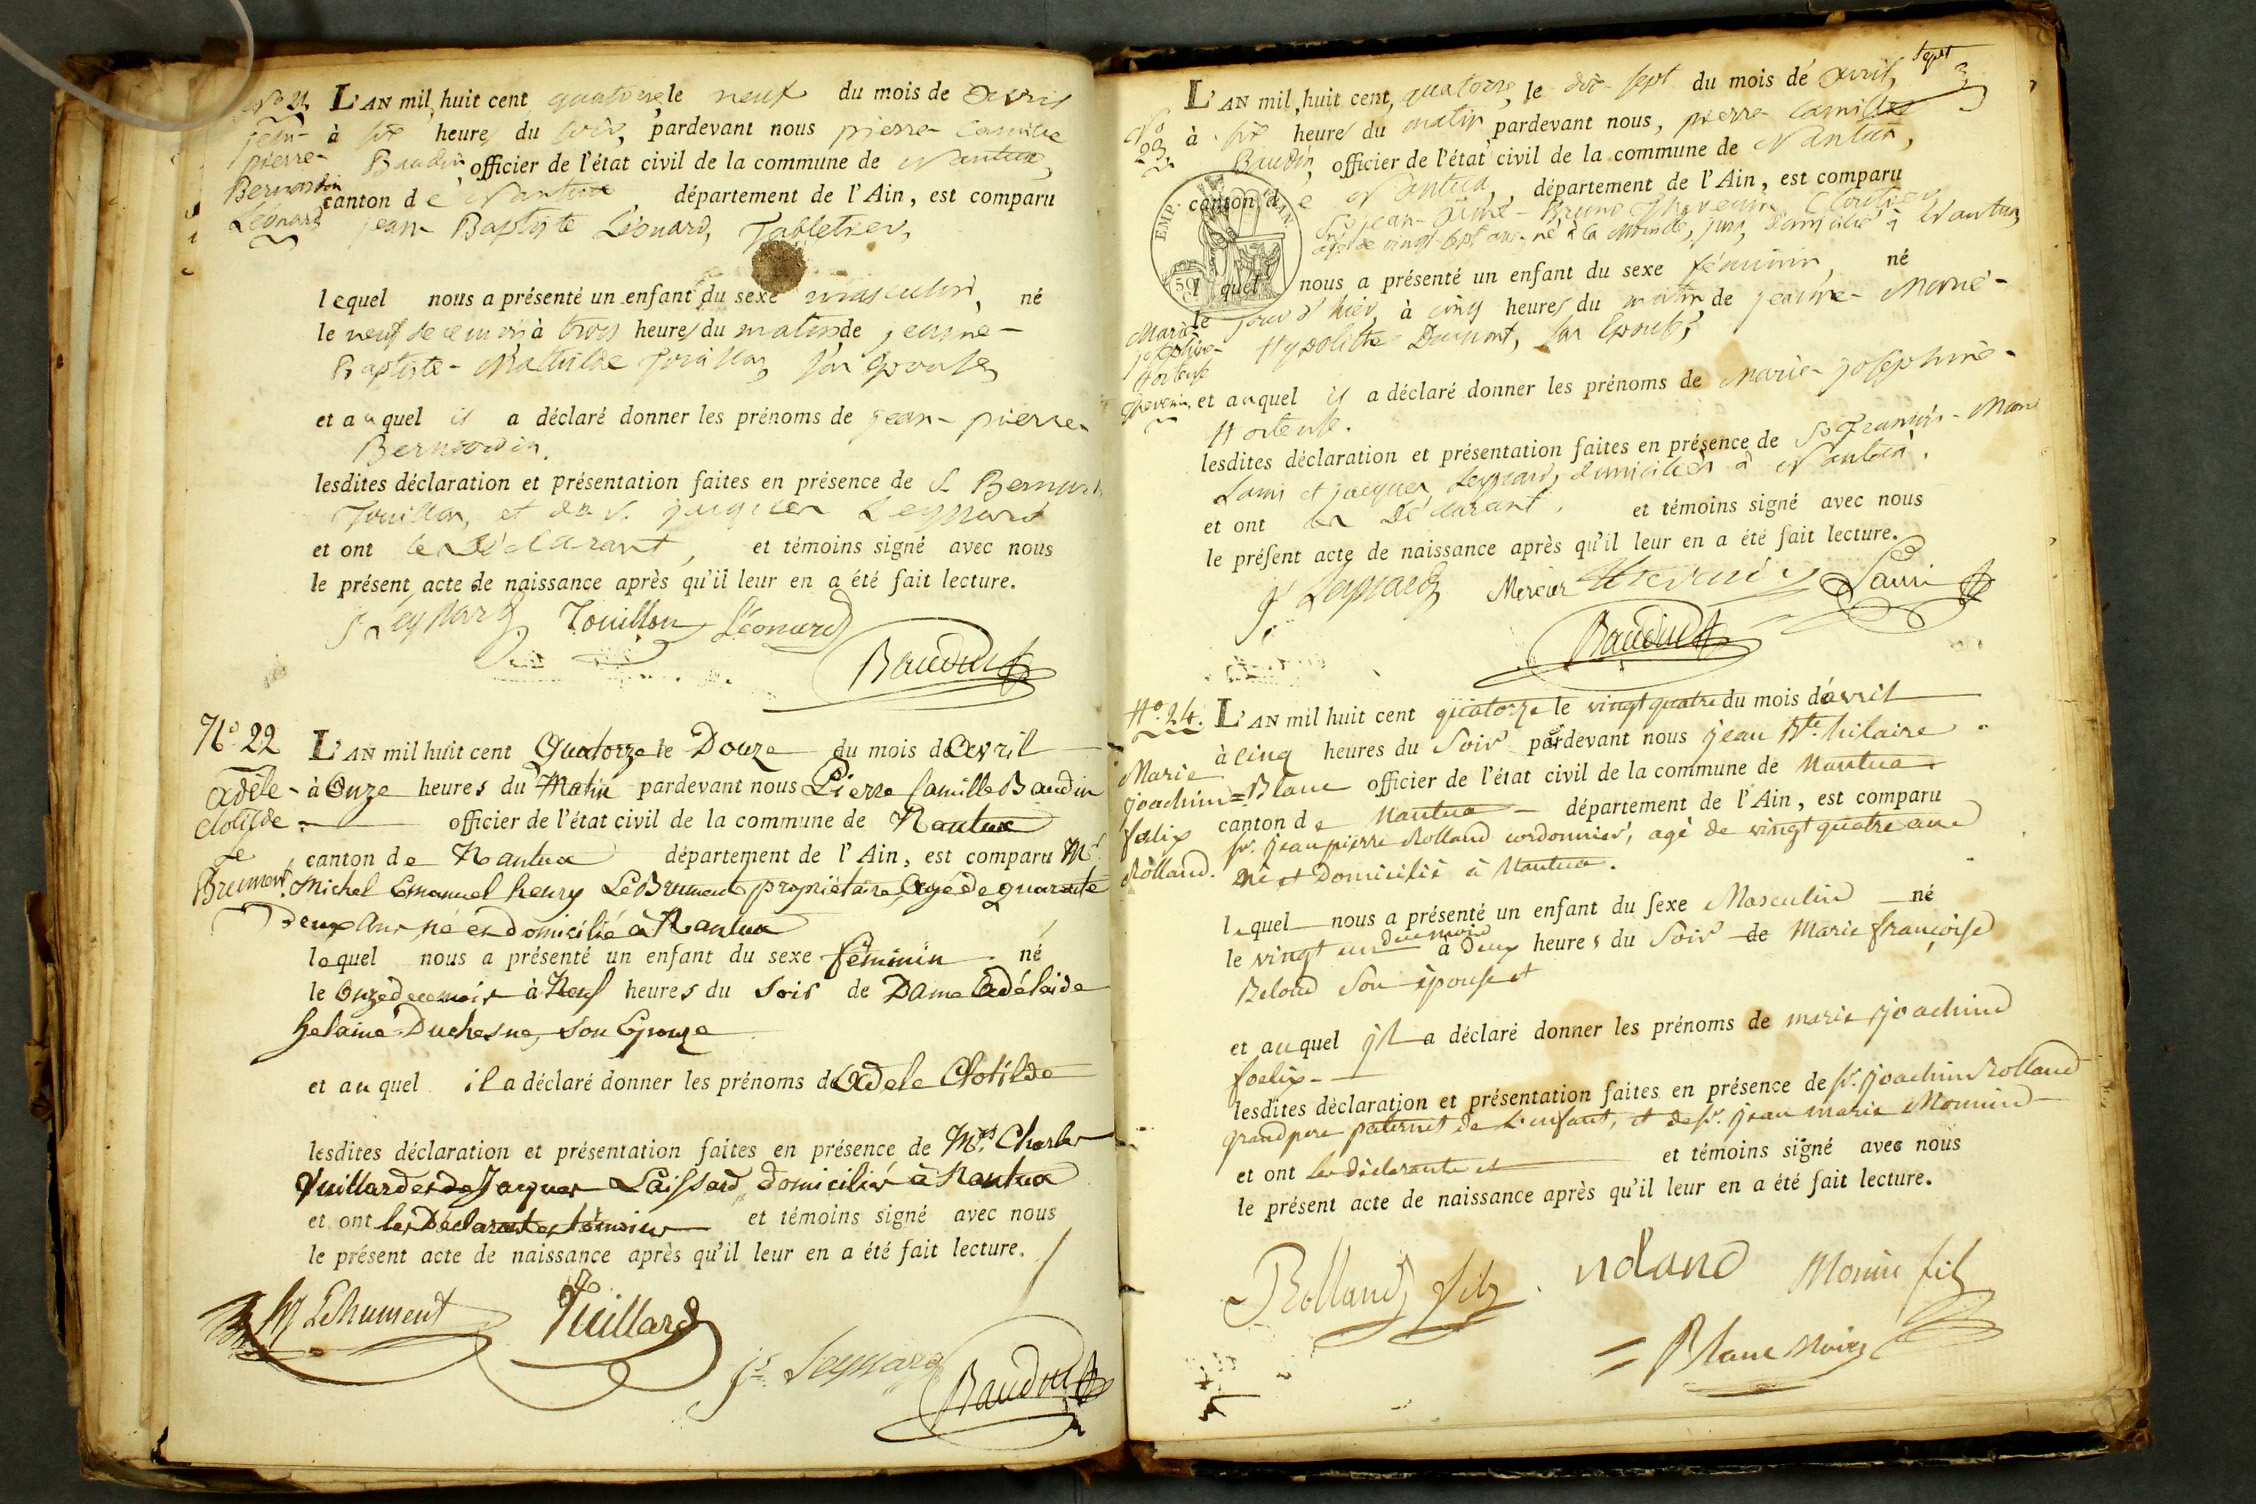 No 21
jean-
pierre-
Bernardin
Léonard
L'AN mil huit cent quatorze le neuf du mois de avril
à six heures du soir, pardevant nous pierre-Camille
Baudin, officier de l'état civil de la commune de Nantua,
canton de Nantua, département de l'Ain, est comparu
jean-Baptiste Léonard, Tabletier,
lequel nous a présenté un enfant du sexe masculin, né
le neuf de ce mois à trois heures du matin de jeanne-
Baptiste-Mathilde Touillon, son épouse,
et auquel il a déclaré donner les prénoms de jean-pierre-
Bernardin.
lesdites déclaration et présentation faites en présence de S. Bernard
Touillon, et de S. jacques Leyssard
et ont le Déclarant, et témoins signé avec nous
le présent acte de naissance après qu'il leur en a été fait lecture.
J Leyssard Touillon Léonard
Baudin
No 22
adèle-
clotilde
Le
Brument
L'AN mil huit cent Quatorze le Douze du mois d'avril
à Onze heures du Matin pardevant nous Pierre Camille Baudin
officier de l'état civil de la commune de Nantua
canton de Nantua département de l'Ain, est comparu Mr.
Michel Emanuel henry LeBrument propriétaire, agé de quarante
deux ans né et domicilié à Nantua
lequel nous a présenté un enfant du sexe féminin né
le onze de ce mois à Neuf heures du soir de Dame Adélaïde
helaine Duchesne, son Epouze
et auquel il a déclaré donner les prénoms de Adele Clotilde
lesdites déclaration et présentation faites en présence de Mrs. Charles
Vuillard et de Jacques Laissard domiciliés à Nantua
et ont les Déclarant et témoins et témoins signé avec nous
le présent acte de naissance après qu'il leur en a été fait lecture.
LeBrument Vuillard
Js. Leyssard Baudin
sept
No 23
Marie-
josephine-
Hortense
Thevenin
L'AN mil huit cent quatorze, le dix-sept du mois de avril,
à six heures du matin pardevant nous, pierre-Camille
Baudin, officier de l'état civil de la commune de Nantua,
canton de Nantua, département de l'Ain, est comparu
EMP. 50 C
Sr jean-Aimé-Bruno Thevenin Cloutier
agé de vingt sept ans, né à la Mouille, jura, domicilié à Nantua,
lequel nous a présenté un enfant du sexe féminin, né
le jour d'hier, à cinq heures du matin de jeanne-Marie-
Hypolithe Dumont, son Epouse,
et auquel il a déclaré donner les prénoms de Marie-josephine-
Hortense.
lesdites déclaration et présentation faites en présence de Sr françois-Marie
Lami et jacques Leyssard, domiciliés à Nantua.
et ont le Déclarant, et témoins signé avec nous
le présent acte de naissance après qu'il leur en a été fait lecture.
Js Leyssard Mercier Thevenin Lami
Baudin
No. 24.
Marie
joachim
foelix
Rolland.
L'AN mil huit cent quatorze le vingt quatre du mois d'avril
à cinq heures du Soir pardevant nous jean Bte. hilaire
Blanc officier de l'état civil de la commune de Nantua
canton de Nantua département de l'Ain, est comparu
sr. jean pierre Rolland cordonnier, agé de vingt quatre ans
né et Domicilié à Nantua.
lequel nous a présenté un enfant du sexe Masculin né
le vingt un de ce mois à deux heures du Soir de Marie françoise
Beloud son épouse et
et auquel il a déclaré donner les prénoms de marie joachim
foelix-
lesdites déclaration et présentation faites en présence de sr. joachim Rolland
grand pere paternel de l'enfant, et de sr. jean marie Monnin
et ont les déclarants et et témoins signé avec nous
le présent acte de naissance après qu'il leur en a été fait lecture.
Rolland fils Monin fils
Blanc Maire